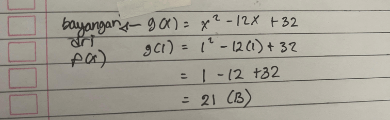 bayangan ← g(x) = x² - 12x + 32
dri g(1) = 1² - 12(1) + 32
f(x) = 1 - 12 + 32
= 21 (B)